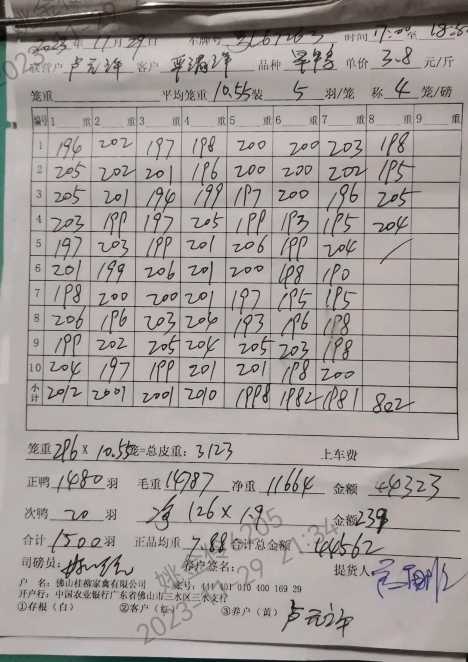 2023年 11月29日 车牌号 时间 17:00 至
联营户 卢元许 客户 品种 单价 3.8 元/斤
笼重 平均笼重 10.55 装 5 羽/笼 称 4 笼/磅
编号 1 重 2 重 3 重 4 重 5 重 6 重 7 重 8 重 9 重
1 196 202 197 198 200 200 203 198
2 205 202 201 196 200 200 202 195
3 205 201 194 199 197 200 196 205
4 203 199 197 205 199 193 195 204
5 197 203 199 201 206 199 204
6 201 199 206 201 200 198 190
7 198 200 200 201 197 195 195
8 206 196 203 204 193 196 198
9 199 202 205 204 205 203 198
10 204 197 199 201 201 198 200
小计 2012 2001 2001 2010 1998 1982 1981 802
笼重 296 × 10.55 笼=总皮重: 3123 上车费
正鸭 1480 羽 毛重 14787 净重 11664 金额 44323
次鸭 20 羽 净 126 × 1.9 金额 239
合计 1500 羽 正品均重 7.88 合计总金额 44562
司磅员: 客户签名: 提货人:
户 名: 佛山桂柳家禽有限公司 账号: 441 101 010 400 169 29
开户行: 中国农业银行广东省佛山市三水区三水支行
①存根（白） ②客户（红） ③养户（黄） 卢元许
2023-11-29 21:34